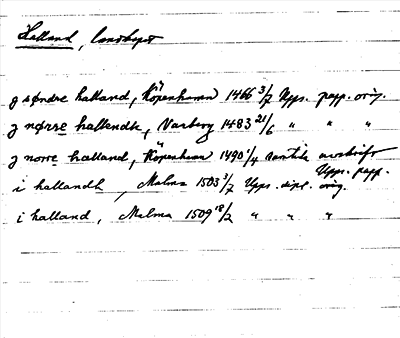 Halland, landskapet
j søndre halland, Köpenhamn 1466 3/7 Upps. papp. orig.
j nørre hallendh, Varberg 1483 21/6 " " "
j norre halland, Köpenhamn 1490 1/4 samtida avskrift
Upps. papp.
i hallandh, Malmø 1503 3/7 Upps. dipl. orig.
i halland, Malmø 1509 18/2 " " "